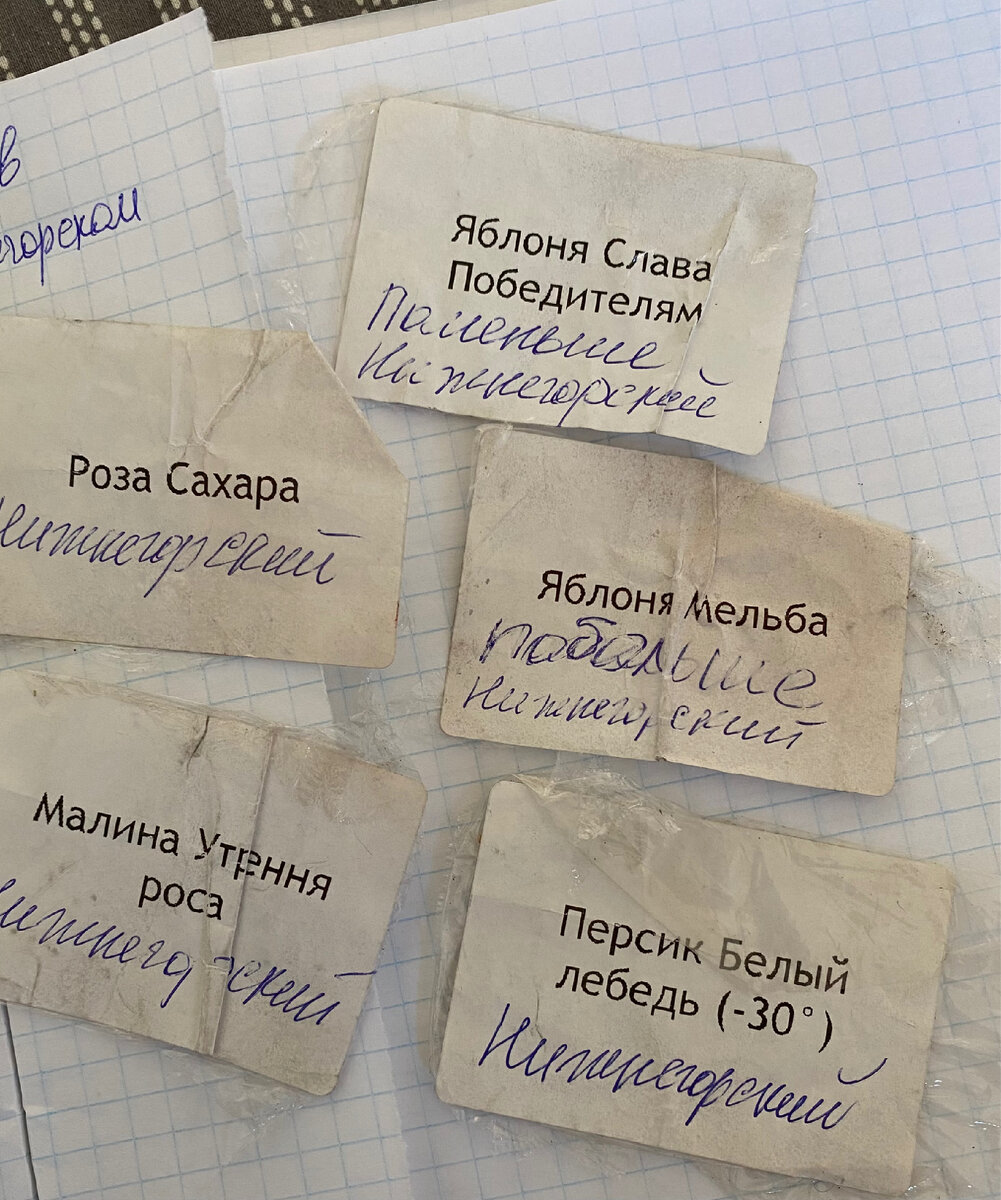 в
горском
Яблоня Слава
Победителям
Поменьше
Нижнегорский
Роза Сахара
Нижнегорский
Яблоня Мельба
побольше
Нижнегорский
Малина Утрення
роса
Нижнегорский
Персик Белый
лебедь (-30°)
Нижнегорский